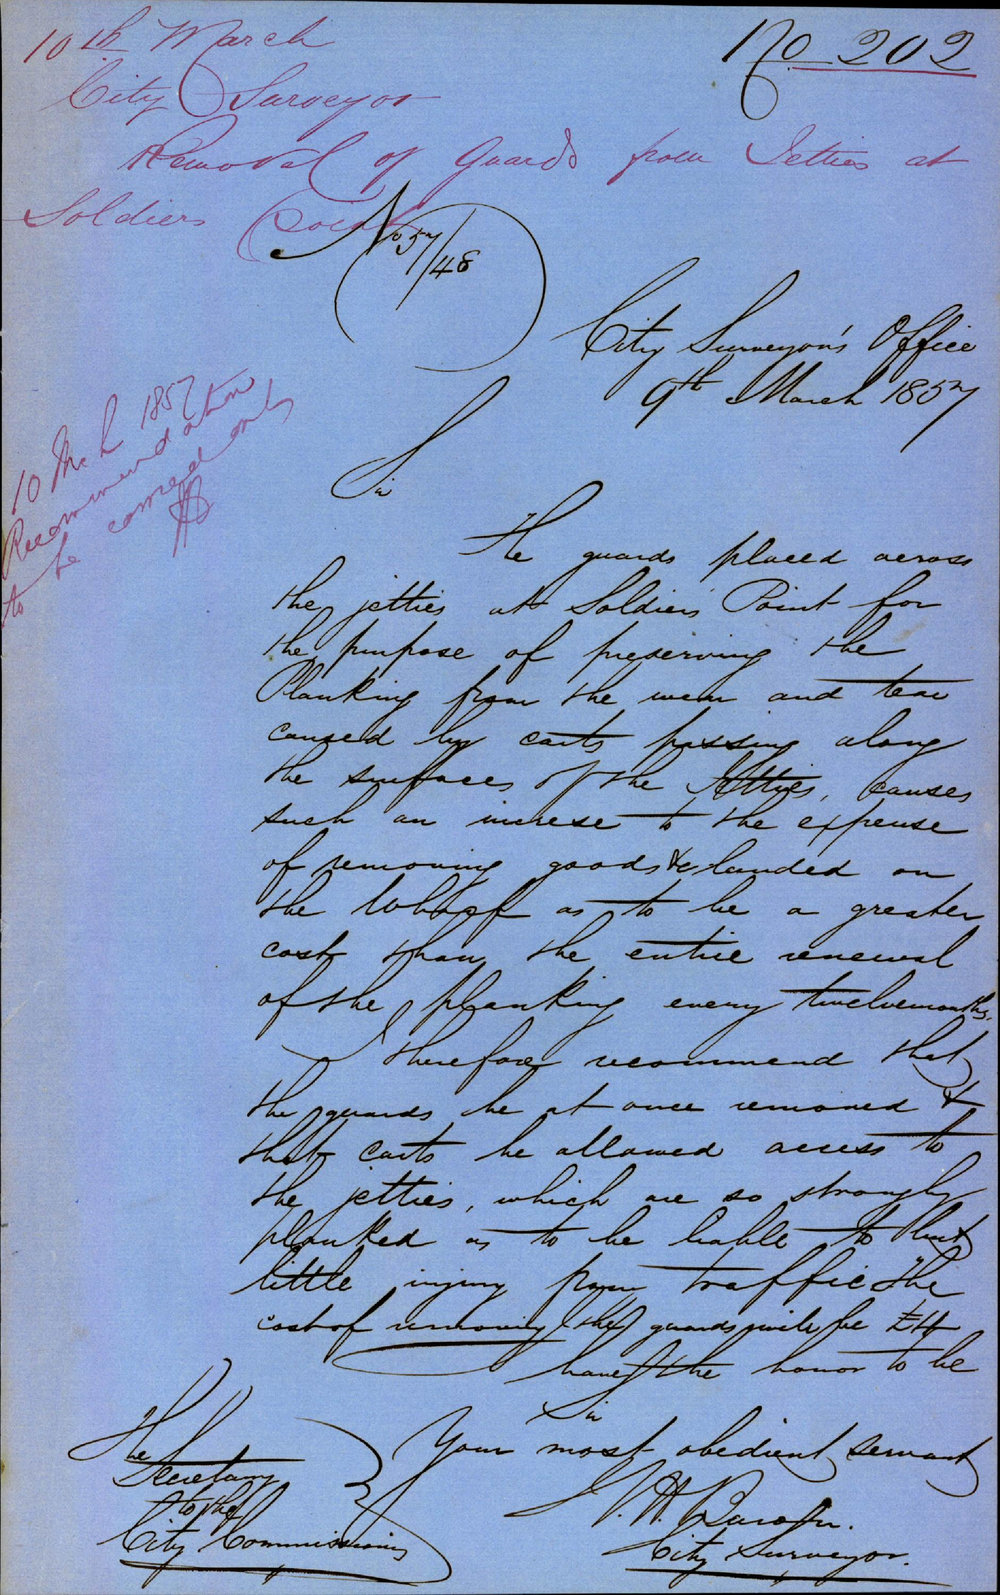 10th March
City Surveyor
Removal of Guards from Jetties at
Soldiers Point
No 202
No 57/48
City Surveyor's Office
9th March 1857
10 Mch 1857
Recommendation
to be carried out
Sir
The guards placed across
the jetties at Soldiers Point for
the purpose of preserving the
Planking from the wear and tear
caused by carts passing along
the surfaces of the Jetties, causes
such an increse to the expense
of removing goods &c landed on
the Wharf as to be a greater
cost than the entire renewal
of the planking every twelvemonths.
I therefore recommend that
the guards be at once removed &
that carts be allowed access to
the jetties, which are so strongly
planked as to be liable to but
little injury from traffic The
cost of removing the guards will be £4
I have the honor to be
Sir
Your most obedient servant
City Surveyor.
The
Secretary
to the
City Commissioners